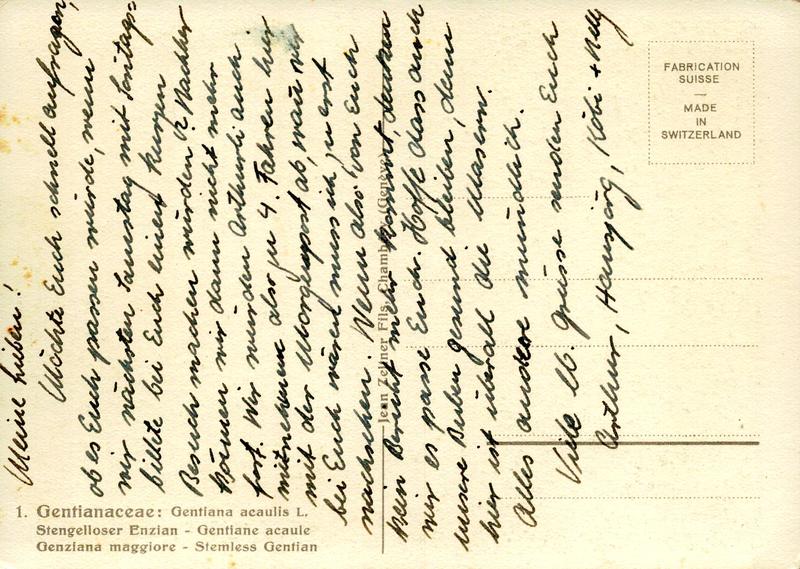 Meine Lieben!
Möchte Euch schnell anfragen,
ob es Euch passen würde, wenn
wir nächsten Samstag mit Sontags=
billete bei Euch einen kurzen
Besuch machen würden? Nachher
können wir dann nicht mehr
fort. Wir würden Arthurli auch
mitnehmen also zu 4. Fahren hier
mit der Morgenpost ab, wann wir
bei Euch wären muss ich zu erst
nachsehen. Wenn also von Euch
kein Bericht mehr kommt, denken
wir es passe Euch. Hoffe dass auch
unsere Buben gesund bleiben, denn
hier ist überall die Masern.
Alles andere mündlich.
Viele lb. Grüsse senden Euch
Arthur, Hansjörg, Köbi + Nelly
FABRICATION
SUISSE
—
MADE
IN
SWITZERLAND
Jean Zellner Fils, Chambésy (Genève)
1. Gentianaceae: Gentiana acaulis L.
Stengelloser Enzian - Gentiane acaule
Genziana maggiore - Stemless Gentian